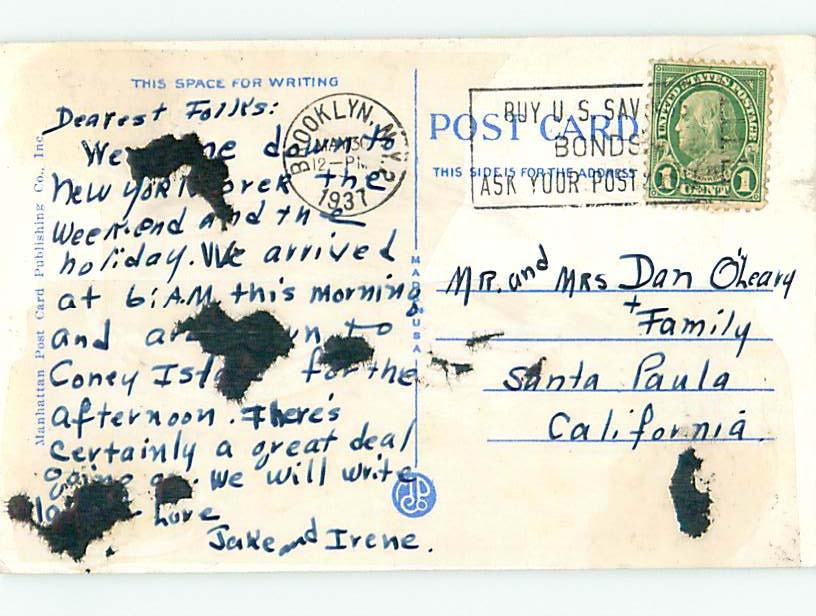 THIS SPACE FOR WRITING
Dearest Folks:
We down to
New York over the
Weekend and the
holiday. We arrived
at 6: A.M. this morning
and to
Coney for the
afternoon. There's
Certainly a great deal
going We will write
Love
Jake and Irene.
Manhattan Post Card Publishing Co., Inc.
MADE IN USA
BROOKLYN, N.Y. 2
MAY 30
12-PM
1937
BUY U.S. SAV
BONDS
ASK YOUR POST
UNITED STATES POSTAGE
1 CENT 1
POST CARD
THIS SIDE IS FOR THE ADDRESS
Mr. and Mrs Dan O'Leary
+ Family
Santa Paula
California.